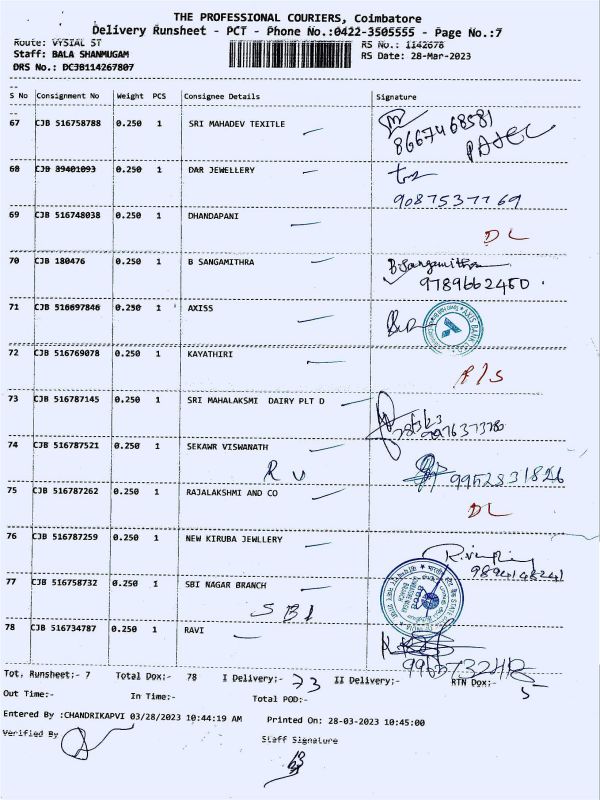 THE PROFESSIONAL COURIERS, Coimbatore
Delivery Runsheet - PCT - Phone No.:0422-3505555 - Page No.:7
Route: VYSIAL ST RS No.: 1142678
Staff: BALA SHANMUGAM RS Date: 28-Mar-2023
DRS No.: DCJB114267807
S No Consignment No Weight PCS Consignee Details Signature
67 CJB 516758788 0.250 1 SRI MAHADEV TEXITLE 8667468581
68 CJB 89401093 0.250 1 DAR JEWELLERY
9087537769
69 CJB 516748038 0.250 1 DHANDAPANI
DL
70 CJB 180476 0.250 1 B SANGAMITHRA B.Sangamithra
9789662450
71 CJB 516697846 0.250 1 AXISS AXIS BANK
72 CJB 516769078 0.250 1 KAYATHIRI
P/S
73 CJB 516787145 0.250 1 SRI MAHALAKSMI DAIRY PLT D
74 CJB 516787521 0.250 1 SEKAWR VISWANATH
R V 9952831826
75 CJB 516787262 0.250 1 RAJALAKSHMI AND CO
DL
76 CJB 516787259 0.250 1 NEW KIRUBA JEWLLERY
9894148241
77 CJB 516758732 0.250 1 SBI NAGAR BRANCH
SBI
78 CJB 516734787 0.250 1 RAVI
Tot. Runsheet:- 7 Total Dox:- 78 I Delivery:- 73 II Delivery:- RTN Dox:- 5
Out Time:- In Time:- Total POD:-
Entered By :CHANDRIKAPVI 03/28/2023 10:44:19 AM Printed On: 28-03-2023 10:45:00
Verified By Staff Signature